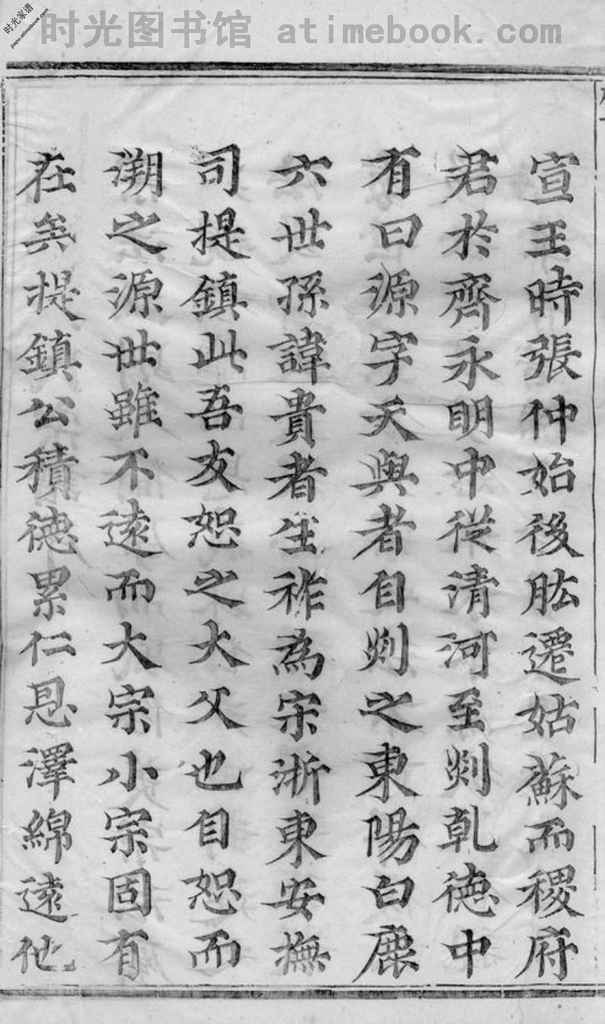 时光家谱
时光图书馆 atimebook.com
宣王時張仲始後肱遷姑蘇而稷府
君於齊永明中從清河至剡乹德中
有曰源字天與者自剡之東陽白鹿
六世孫諱貴者生祚為宗浙東安撫
司提鎮此吾友恕之大父也自恕而
溯之源世雖不遠而大宗小宗固有
在矣提鎮公積德累仁恩澤綿遠他